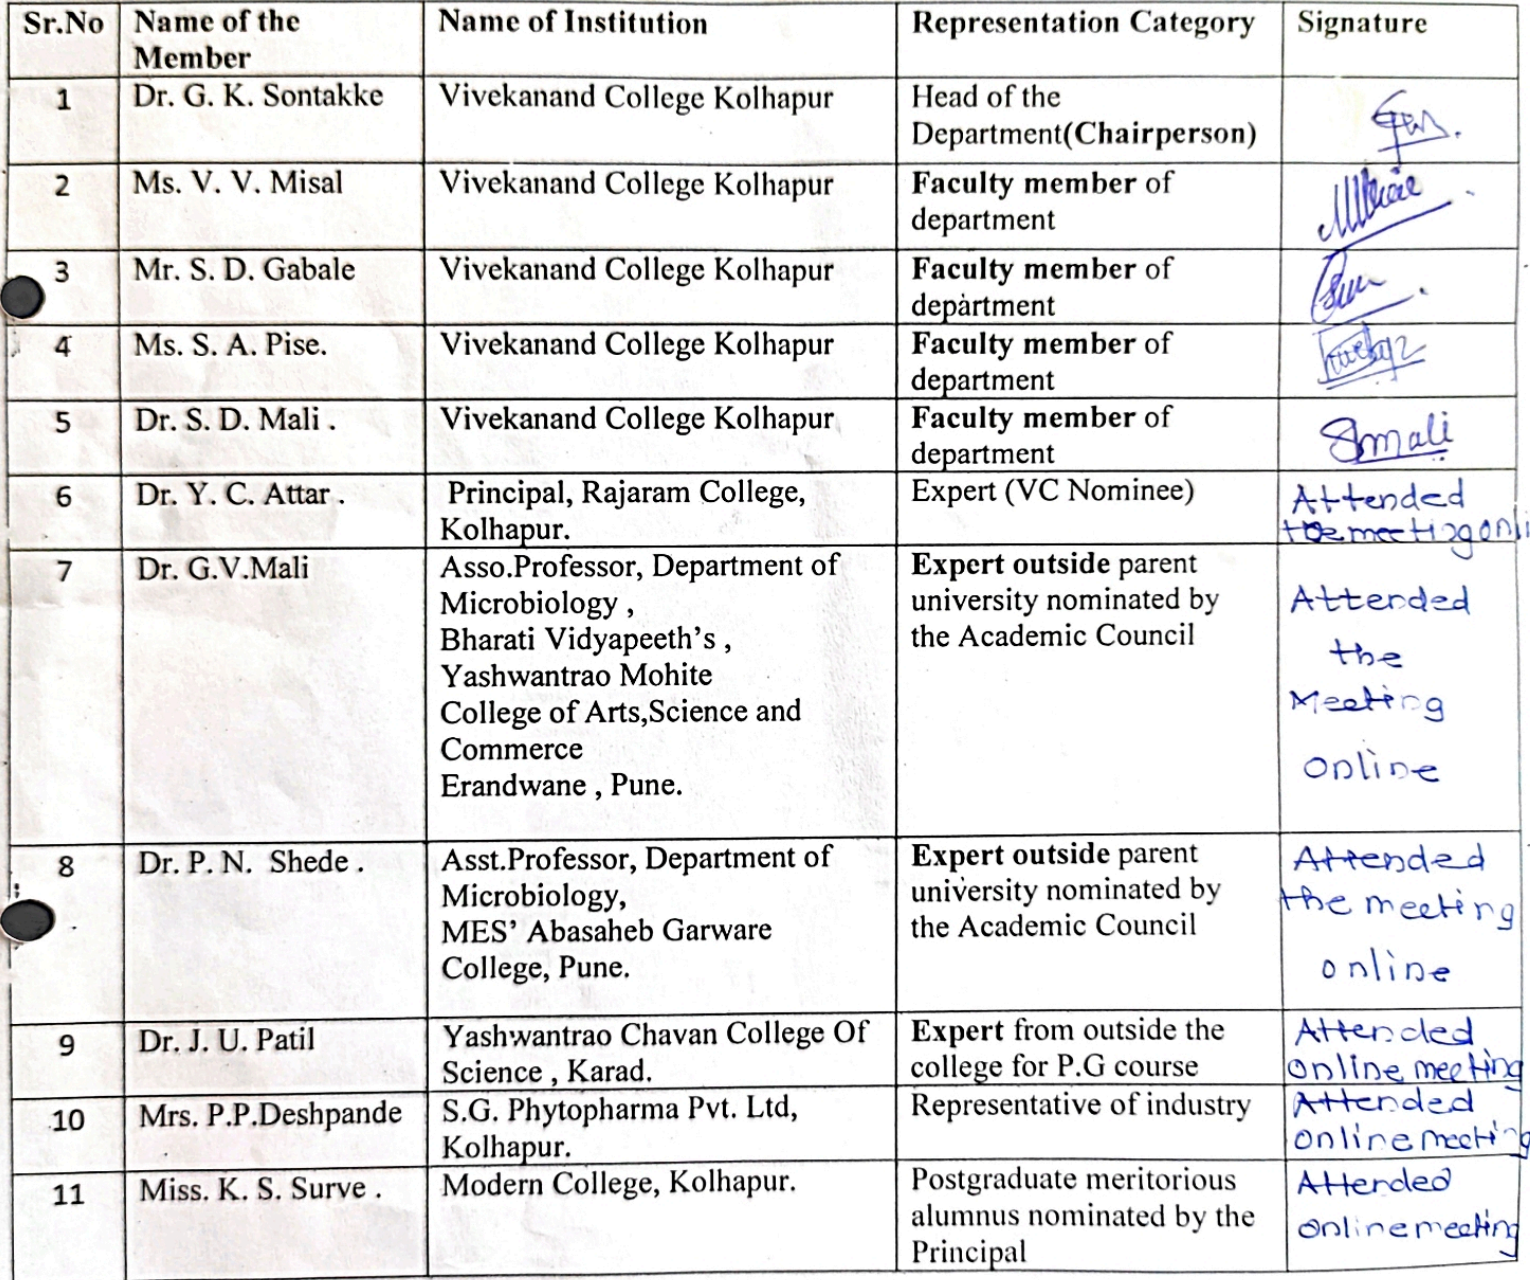 Sr.No Name of the Member Name of Institution Representation Category Signature
1 Dr. G. K. Sontakke Vivekanand College Kolhapur Head of the
Department(Chairperson)
2 Ms. V. V. Misal Vivekanand College Kolhapur Faculty member of
department
3 Mr. S. D. Gabale Vivekanand College Kolhapur Faculty member of
department
4 Ms. S. A. Pise. Vivekanand College Kolhapur Faculty member of
department
5 Dr. S. D. Mali . Vivekanand College Kolhapur Faculty member of
department
Smali
6 Dr. Y. C. Attar . Principal, Rajaram College,
Kolhapur.
Expert (VC Nominee)
Attended
the meeting onli
7 Dr. G.V.Mali
Asso.Professor, Department of
Microbiology ,
Bharati Vidyapeeth's ,
Yashwantrao Mohite
College of Arts,Science and
Commerce
Erandwane , Pune.
Expert outside parent
university nominated by
the Academic Council
Attended
the
Meeting
online
8 Dr. P. N. Shede .
Asst.Professor, Department of
Microbiology,
MES' Abasaheb Garware
College, Pune.
Expert outside parent
university nominated by
the Academic Council
Attended
the meeting
online
9 Dr. J. U. Patil
Yashwantrao Chavan College Of
Science , Karad.
Expert from outside the
college for P.G course
Attended
online meeting
10 Mrs. P.P.Deshpande
S.G. Phytopharma Pvt. Ltd,
Kolhapur.
Representative of industry
Attended
online meeting
11 Miss. K. S. Surve .
Modern College, Kolhapur.
Postgraduate meritorious
alumnus nominated by the
Principal
Attended
online meeting